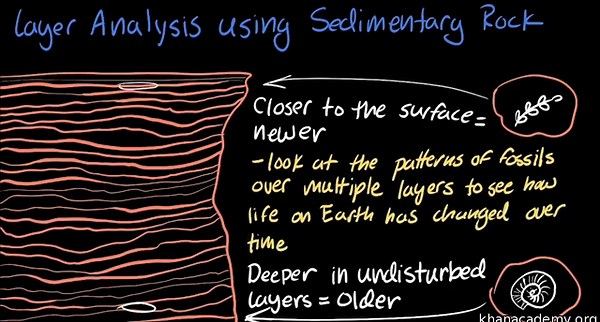 Layer Analysis using Sedimentary Rock
Closer to the surface =
newer
- look at the patterns of fossils
over multiple layers to see how
life on Earth has changed over
time
Deeper in undisturbed
layers = Older
khanacademy.org